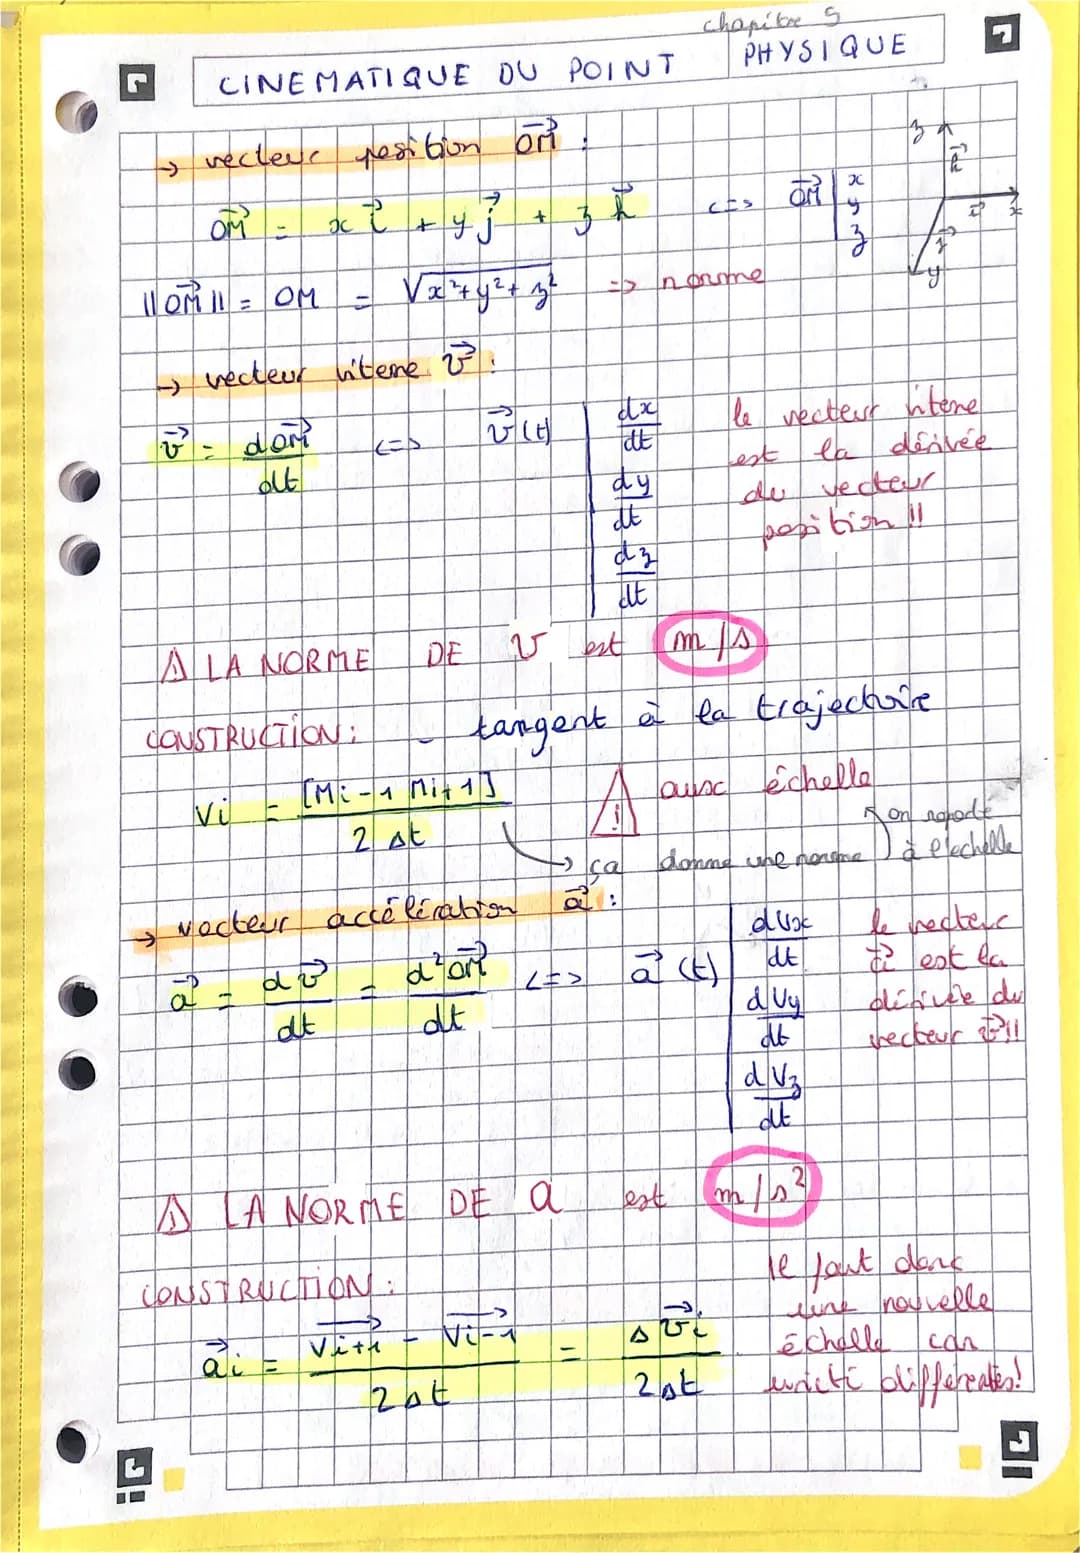 chapitre 5
CINEMATIQUE DU POINT PHYSIQUE
→ vecteur position OM⃗ :
OM⃗ = x i⃗ + y j⃗ + z k⃗ <=> OM⃗ | x y z
z k⃗ i⃗ x j⃗ y
||OM⃗|| = OM = √x²+y²+z² => norme
→ vecteur vitesse v⃗ :
v⃗ = dOM⃗/dt <=> v⃗(t) | dx/dt dy/dt dz/dt
le vecteur vitesse
est la dérivée
du vecteur
position !!
⚠ LA NORME DE v est m/s
CONSTRUCTION : - tangent à la trajectoire
Vi = [Mi-1 Mi+1] / 2Δt
⚠ aux échelle
→ ça donne une norme
on reporte
à l'echelle
→ vecteur accélération a⃗ :
a⃗ = dv⃗/dt = d²OM⃗/dt <=> a⃗(t) | dVx/dt dVy/dt dVz/dt
le vecteur
a⃗ est la
dérivée du
vecteur v⃗!!
⚠ LA NORME DE a est m/s²
CONSTRUCTION :
a⃗i = (Vi+1⃗ - Vi-1⃗) / 2Δt = Δv⃗i / 2Δt
il faut donc
une nouvelle
échelle car
unité différentes!